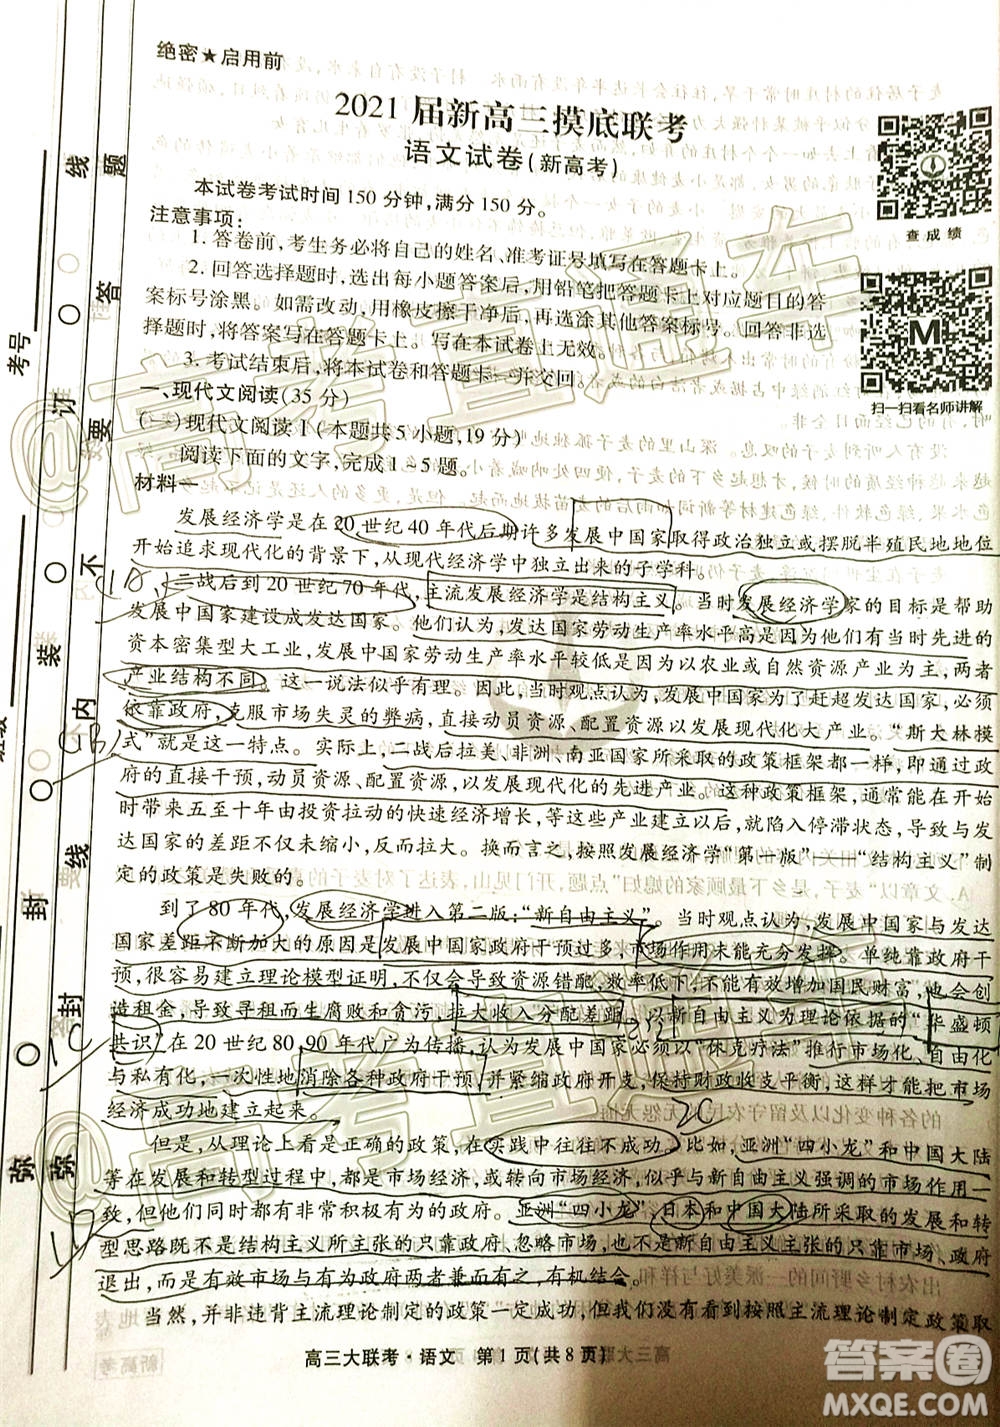 绝密★启用前
2021届新高三摸底联考
语文试卷(新高考)
查成绩
扫一扫看名师讲解
本试卷考试时间150分钟,满分150分。
注意事项:
1.答卷前,考生务必将自己的姓名、准考证号填写在答题卡上。
2.回答选择题时,选出每小题答案后,用铅笔把答题卡上对应题目的答
案标号涂黑。如需改动,用橡皮擦干净后,再选涂其他答案标号。回答非选
择题时,将答案写在答题卡上。写在本试卷上无效。
3.考试结束后,将本试卷和答题卡一并交回。
一、现代文阅读(35分)
(一)现代文阅读Ⅰ(本题共5小题,19分)
阅读下面的文字,完成1~5题。
材料一
发展经济学是在20世纪40年代后期许多发展中国家取得政治独立或摆脱半殖民地地位
开始追求现代化的背景下,从现代经济学中独立出来的子学科。
二战后到20世纪70年代,主流发展经济学是结构主义。当时发展经济学家的目标是帮助
发展中国家建设成发达国家。他们认为,发达国家劳动生产率水平高是因为他们有当时先进的
资本密集型大工业,发展中国家劳动生产率水平较低是因为以农业或自然资源产业为主,两者
产业结构不同。这一说法似乎有理。因此,当时观点认为,发展中国家为了赶超发达国家,必须
依靠政府,克服市场失灵的弊病,直接动员资源、配置资源以发展现代化大产业。“斯大林模
式”就是这一特点。实际上,二战后拉美、非洲、南亚国家所采取的政策框架都一样,即通过政
府的直接干预,动员资源、配置资源,以发展现代化的先进产业。这种政策框架,通常能在开始
时带来五至十年由投资拉动的快速经济增长,等这些产业建立起来,就陷入停滞状态,导致与发
达国家的差距不仅未缩小,反而扩大。换而言之,按照发展经济学“第一版”——“结构主义”制
定的政策是失败的。
到了80年代,发展经济学进入第二版:“新自由主义”。当时观点认为,发展中国家与发达
国家差距不断加大的原因是发展中国家政府干预过多,市场作用未能充分发挥。单纯靠政府干
预,很容易建立理论模型证明,不仅会导致资源错配,无法有效动员和增加国民财富,也会创
造租金,寻租会产生腐败和贪污,拉大收入分配差距。以新自由主义为理论依据的“华盛顿
共识”在20世纪80、90年代广为传播,认为发展中国家必须以“休克疗法”推行市场化、自由化
与私有化,一次性地消除各种政府干预,并紧缩政府开支,保持财政收支平衡,这样才能把市场
经济成功地建立起来。
但是,从理论上看是正确的政策,在实践中往往不成功。比如,亚洲“四小龙”和中国大陆
等在发展和转型过程中,都是市场经济,或转向市场经济,似乎与新自由主义强调的市场作用一
致,但他们同时都有非常积极有为的政府。亚洲“四小龙”、日本和中国大陆所采取的发展和转
型思路既不是结构主义所主张的只靠政府、忽略市场,也不是新自由主义主张的只靠市场、政府
退出,而是有效市场与有为政府两者兼而有之、有机结合。
当然,并非违背主流理论制定的政策一定成功,但我们没有看到按照主流理论制定政策取
高三大联考·语文 第1页(共8页)